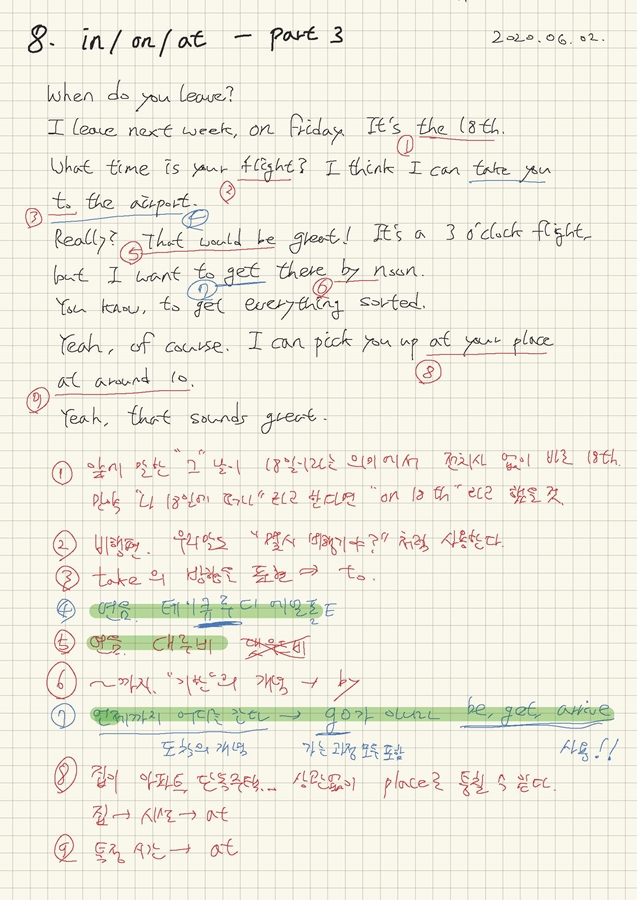 8. in/on/at - part 3
2020.06.02.
When do you leave?
I leave next week, on Friday. It's the 18th.
①
What time is your flight? I think I can take you
②
to the airport.
③ ④
Really? That would be great! It's a 3 o'clock flight,
⑤
but I want to get there by noon.
⑦ ⑥
You know, to get everything sorted.
Yeah, of course. I can pick you up at your place
⑧
at around 10.
⑨
Yeah, that sounds great.
① 앞에 말한 "그" 날이 18일이라는 의미에서 전치사 없이 바로 18th.
만약 "나 18일에 떠나" 라고 한다면 "on 18th" 라고 했을 것.
② 비행편. 우리말도 "몇시 비행기야?" 처럼 사용한다.
③ take의 방향을 표현 ⇒ to.
④ 연음. 테이큐루디
⑤ 연음. 대루비
⑥ ~까지. "기한"의 개념 → by
⑦ 언제까지 어디를 간다 → go가 아니라 be, get, arrive
도착의 개념 가는 과정 모두 포함 사용!!
⑧ 집이 아파트, 단독주택... 상관없이 place로 통칠 수 있다.
집 → 시설 → at
⑨ 특정 시간 → at